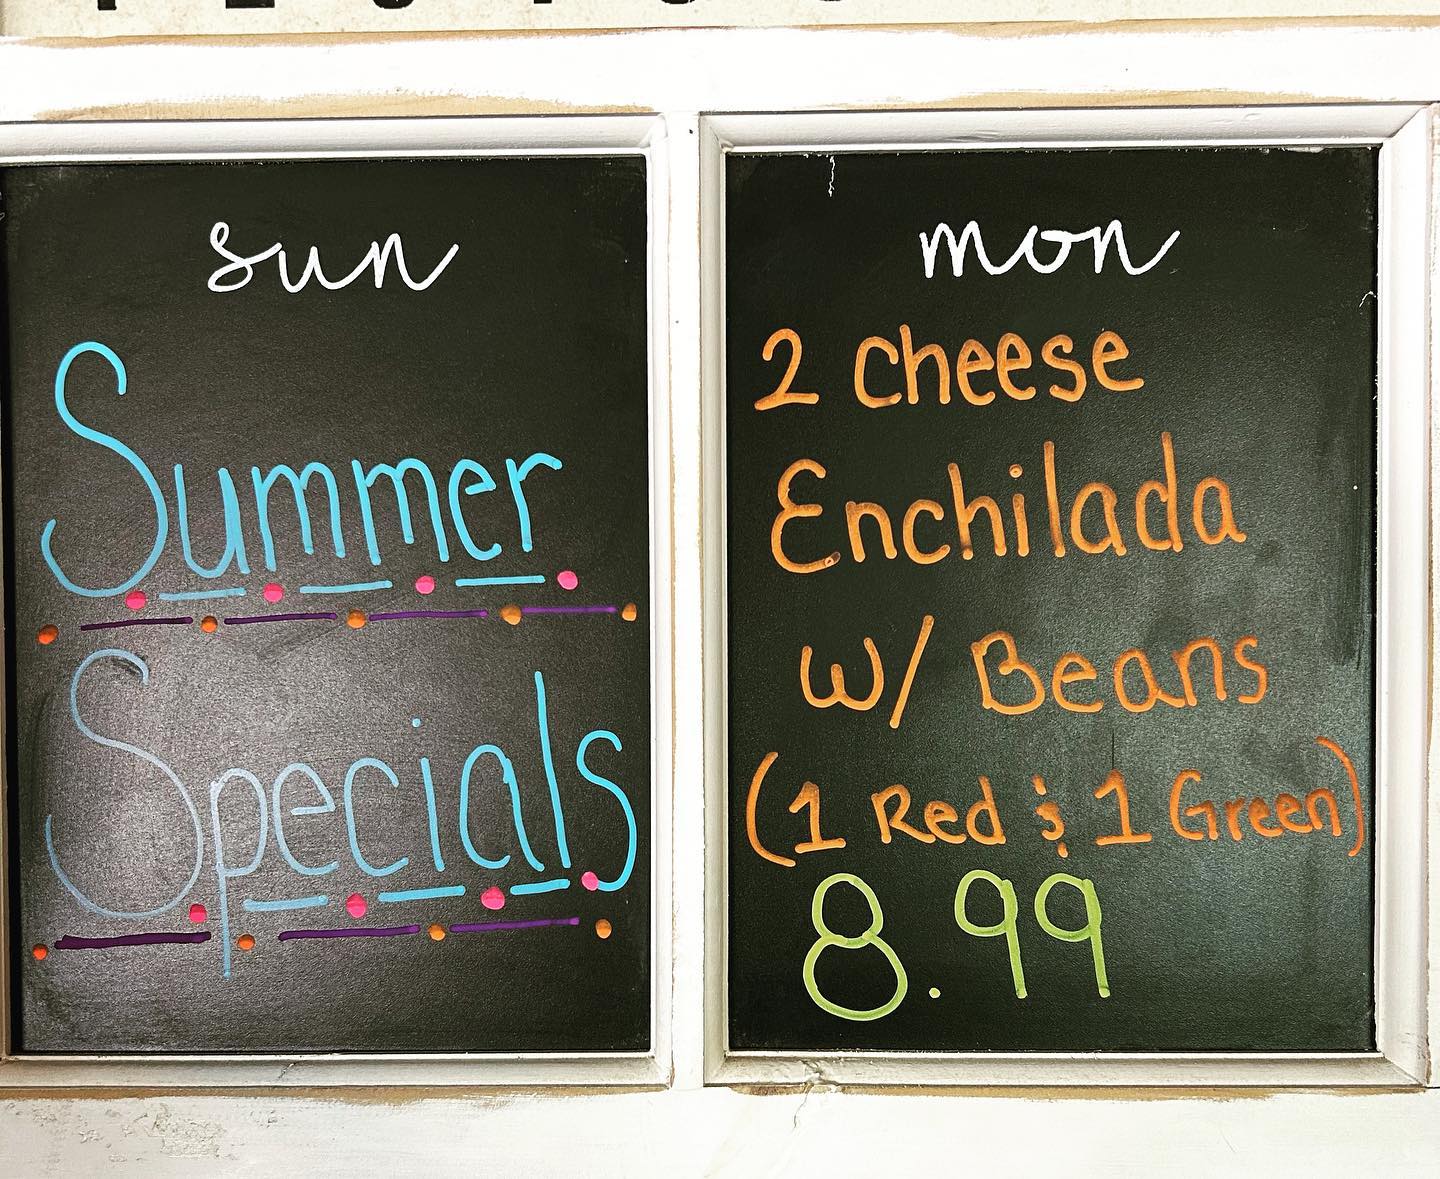 sun
Summer
Specials
mon
2 cheese
Enchilada
w/ Beans
(1 Red & 1 Green)
8.99